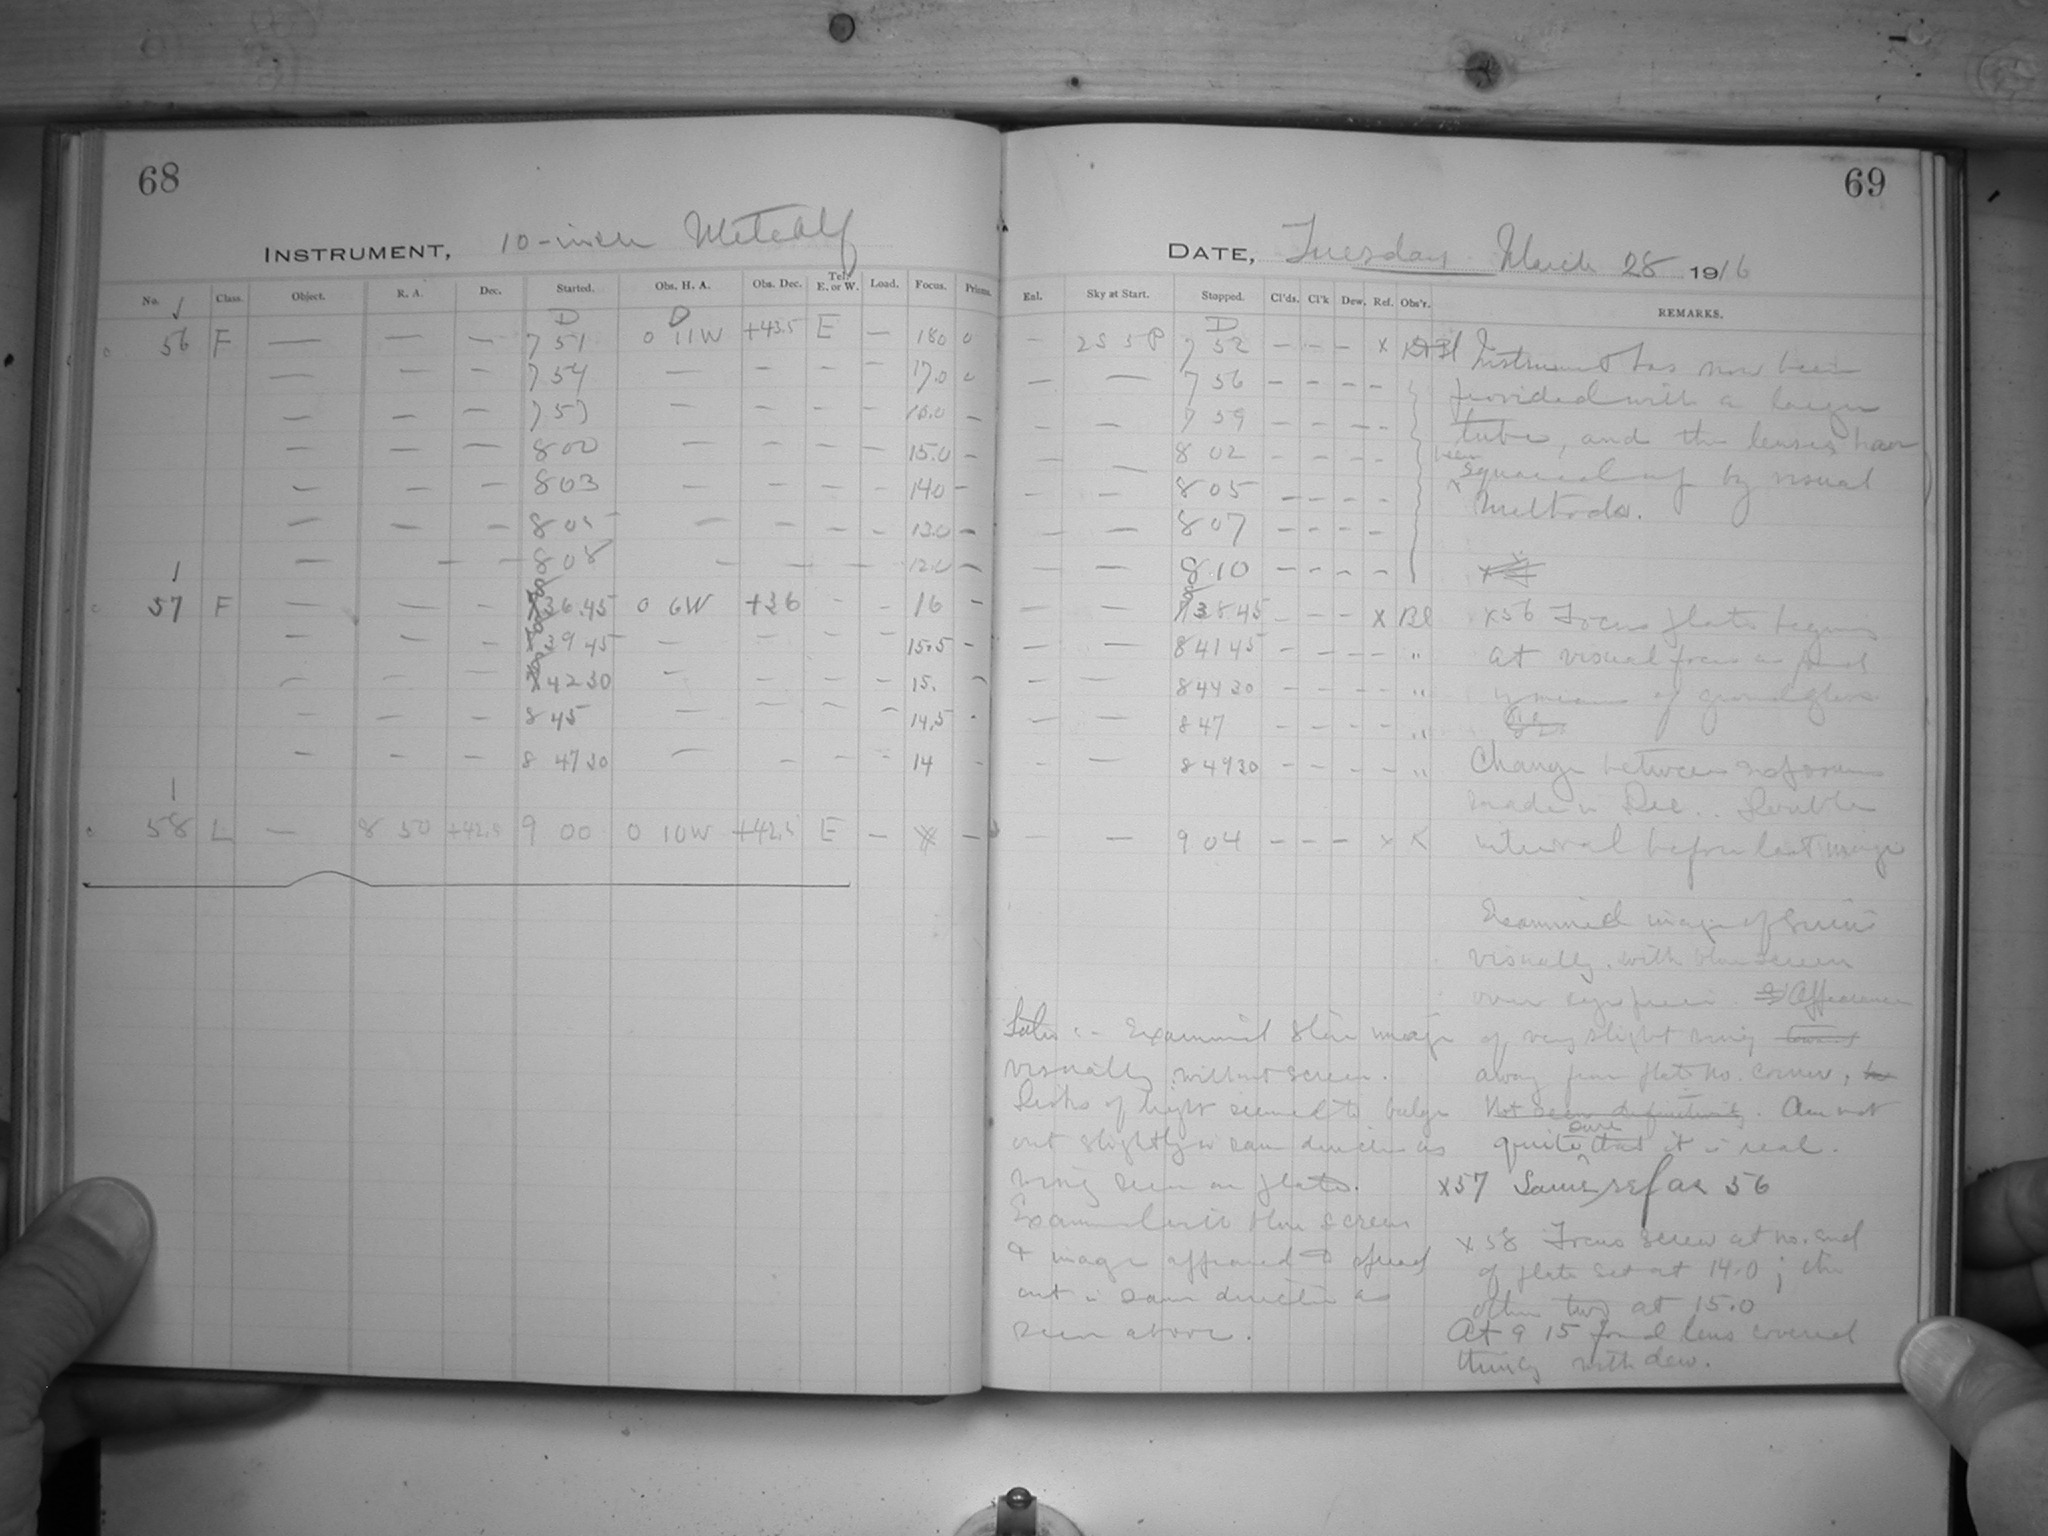 68
INSTRUMENT, 10-inch Metcalf
No. Class. Object. R. A. Dec. Started. Obs. H. A. Obs. Dec. Tel. E. or W. Load. Focus. Prisms.
D D
56 F — — — 7 51 0 11W +43.5 E — 18.0 0
— — — 7 54 — — — — 17.0
— — — 7 57 — — — — 16.0 —
— — — 8 00 — — — — 15.0 —
— — — 8 03 — — — — 14.0 —
— — — 8 05 — — — — 13.0 —
— — — 8 08 — — — — 12.0 —
57 F — — — 8 36 45 0 6W +36 — — 16 —
— — — 8 39 45 — — — — 15.5 —
— — — 8 42 30 — — — — 15. —
— — — 8 45 — — — — 14.5 -
— — — 8 47 30 — — — — 14 -
58 L — 8 50 +42.5 9 00 0 10W +42.5 E — x —
69
DATE, Tuesday March 28 1916
Exl. Sky at Start. Stopped. Cl'ds. Cl'k Dew. Ref. Obs'r. REMARKS.
D
— 2S 5P 7 52 — — — x
— — 7 56 — — — —
— — 7 59 — — — —
— — 8 02 — — — —
— — 8 05 — — — —
— — 8 07 — — — —
— — 8 10 — — — —
— — 8 38 45 — — — x Bl
— — 8 41 45 — — — — "
— — 8 44 30 — — — — "
— — 8 47 — — — — "
— — 8 49 30 — — — — "
— — 9 04 — — — x K
Instrument has now been
provided with a larger
tube, and the lenses have
been squared up by visual
methods.
x56 Focus plate begins
at visual focus as found
by means of ground glass
Change between exposures
made in Dec. Double
interval before last image
Examined image of Sirius
visually with blue screen
over eyepiece. Appearance
of very slight wing toward
away from plate No. corner,
Not seen definitely. Am not
quite sure that it is real.
x57 Same ref as 56
x58 Focus screw at no. end
of plate set at 14.0; the
other two at 15.0
At 9 15 found lens covered
thinly with dew.
Later :- Examined star image
visually without screen.
Disks of light seemed to bulge
out slightly in same direction as
wing seen on plate.
Examined with blue screen
& image appeared to spread
out in same direction as
seen above.